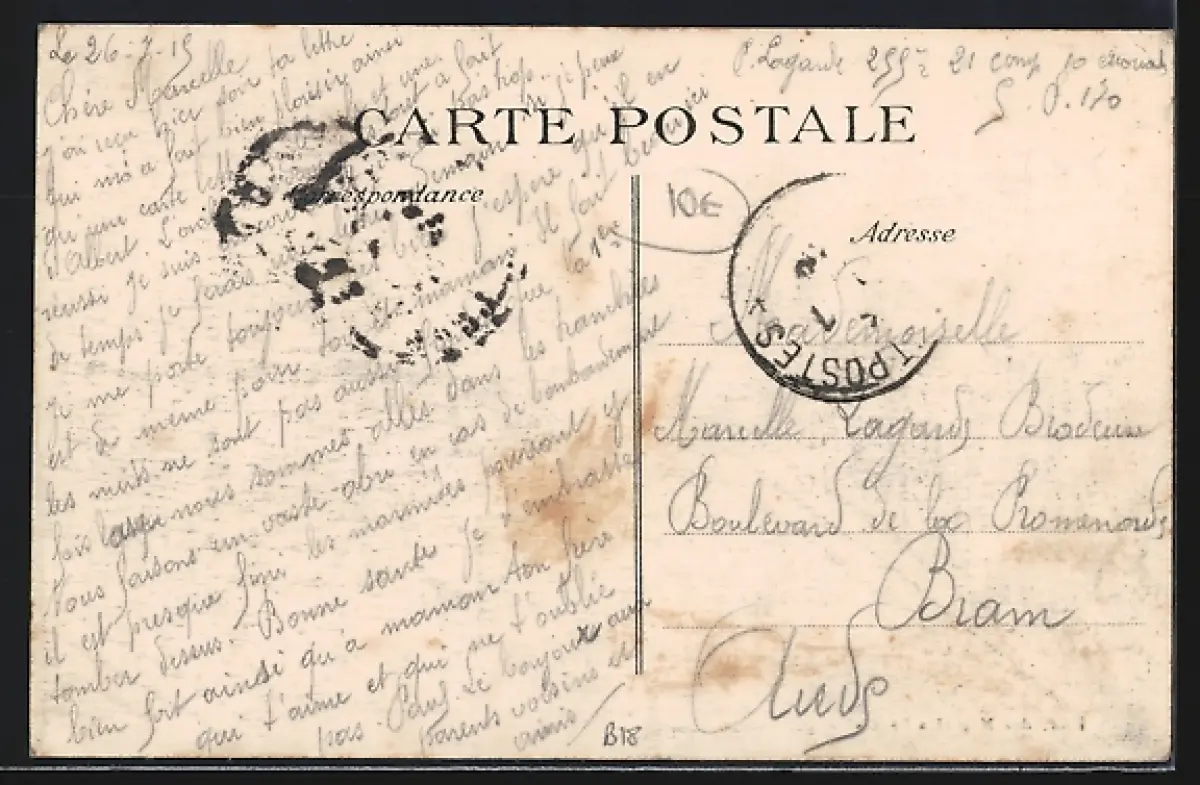 Le 26-7-15
P. Lagarde 299e 21 comp
S. P. 170
CARTE POSTALE
Correspondance
Adresse
10€
Chère Marcelle
j'ai reçu hier soir ta lettre
qui m'a fait bien plaisir ainsi
qu'une carte lettre et une
d'Albert tout à fait
réussi je suis pas trop
de temps je ferais une lettre si je peux
je me porte toujours bien j'espère qu'il en
est de même pour toi et maman Il fait beau ici
les nuits ne sont pas aussi que la 1ère
fois que nous sommes allés dans les tranchées
Nous faisons un vaste abri en cas de bombardement
il est presque fini les marmites pourront y
tomber dessus. Bonne santé Je t'embrasse
bien fort ainsi qu'à maman ton frère
qui t'aime et qui ne t'oublie
pas. Paul Le bonjour aux
parents voisins et
amis
Mademoiselle
Marcelle Lagarde Brodeuse
Boulevard de la Promenade
Bram
Aude
POSTES
B18